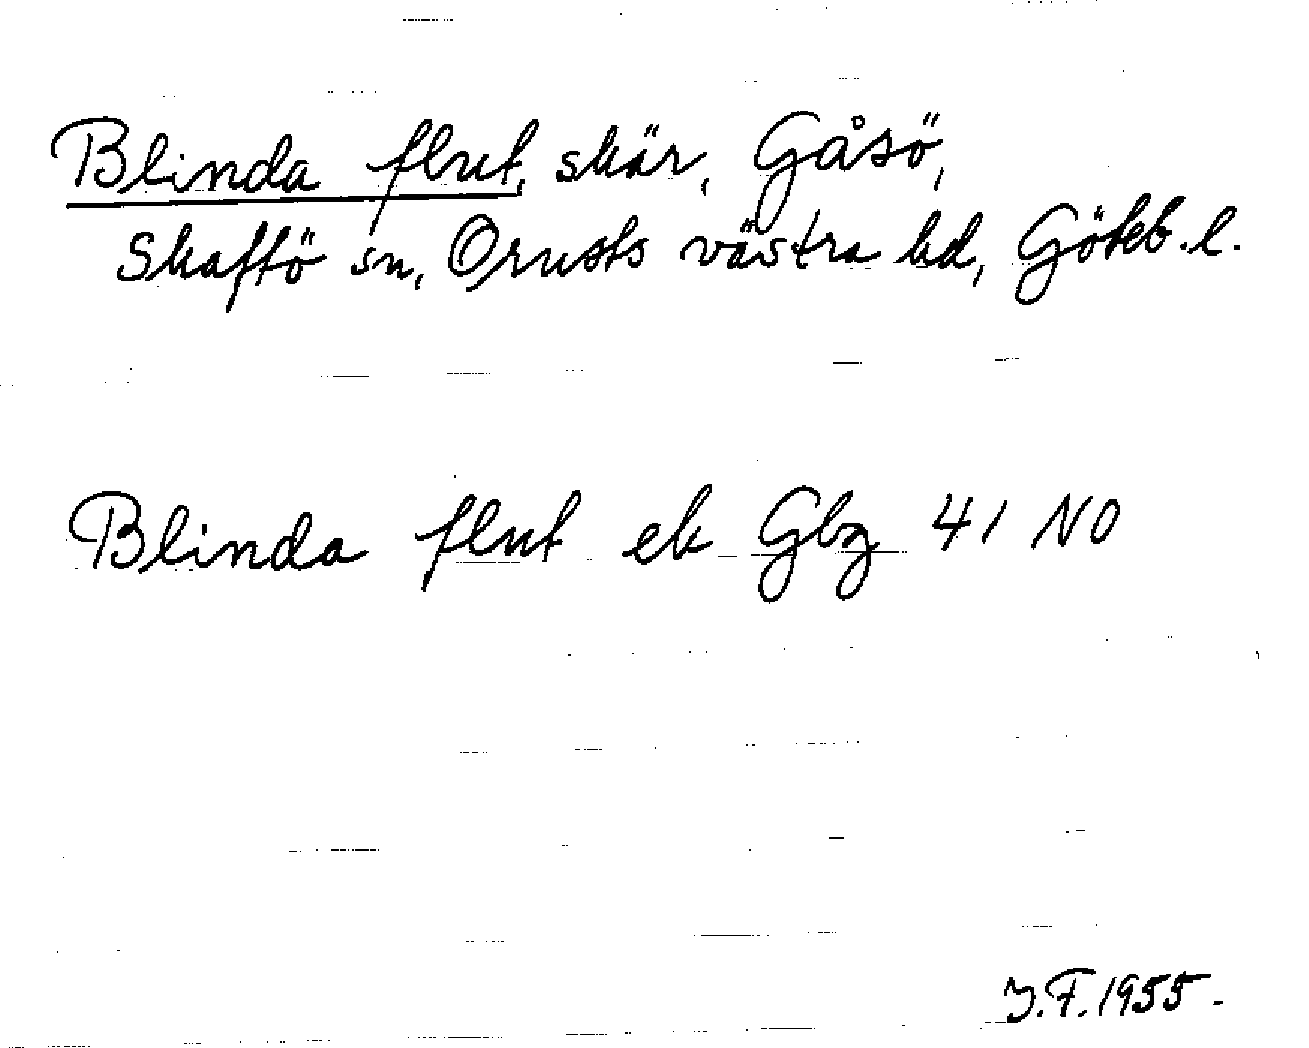 Blinda flut, skär, Gåsö,
Skaftö sn, Orusts västra hd, Göteb. l.
Blinda flut ek Gbg 41 NO
J.F. 1955.